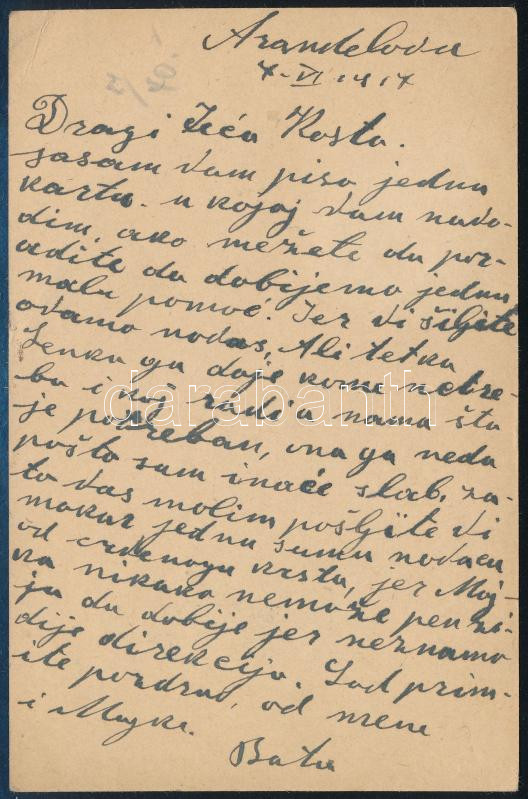 Aranđelovac
4-VI 1917
Dragi Čića Kosta.
ja sam vam piso jednu
kartu. u kojoj vam navo-
dim, ako možete da por-
adite da dobijemo jednu
malu pomoć. Jer vi šiljite
ovamo novac, Ali tetka
Lenka ga daje kome netre-
ba i koj radi a nama što
je potreban, ona ga neda
pošto sam inače slab, za-
to vas molim pošljite vi
makar jednu sumu novaca
od crvenoga krsta, jer Maj-
ka nikako nemože penzi-
ju da dobije jer neznamo
dije direkcija. Sad prim-
ite pozdrav, od mene
i Majke.
Bata
darabanth